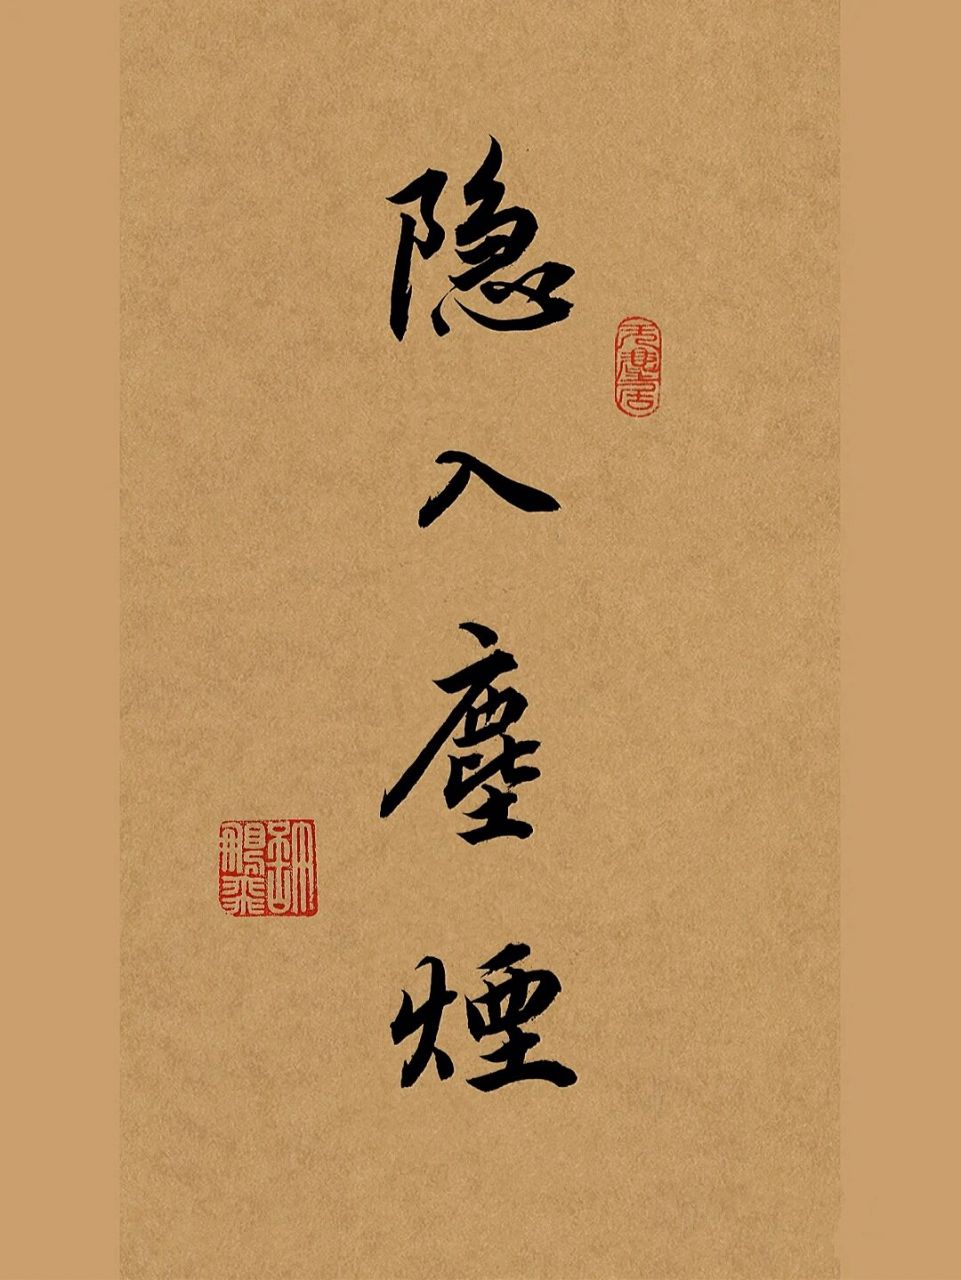 隐入塵煙